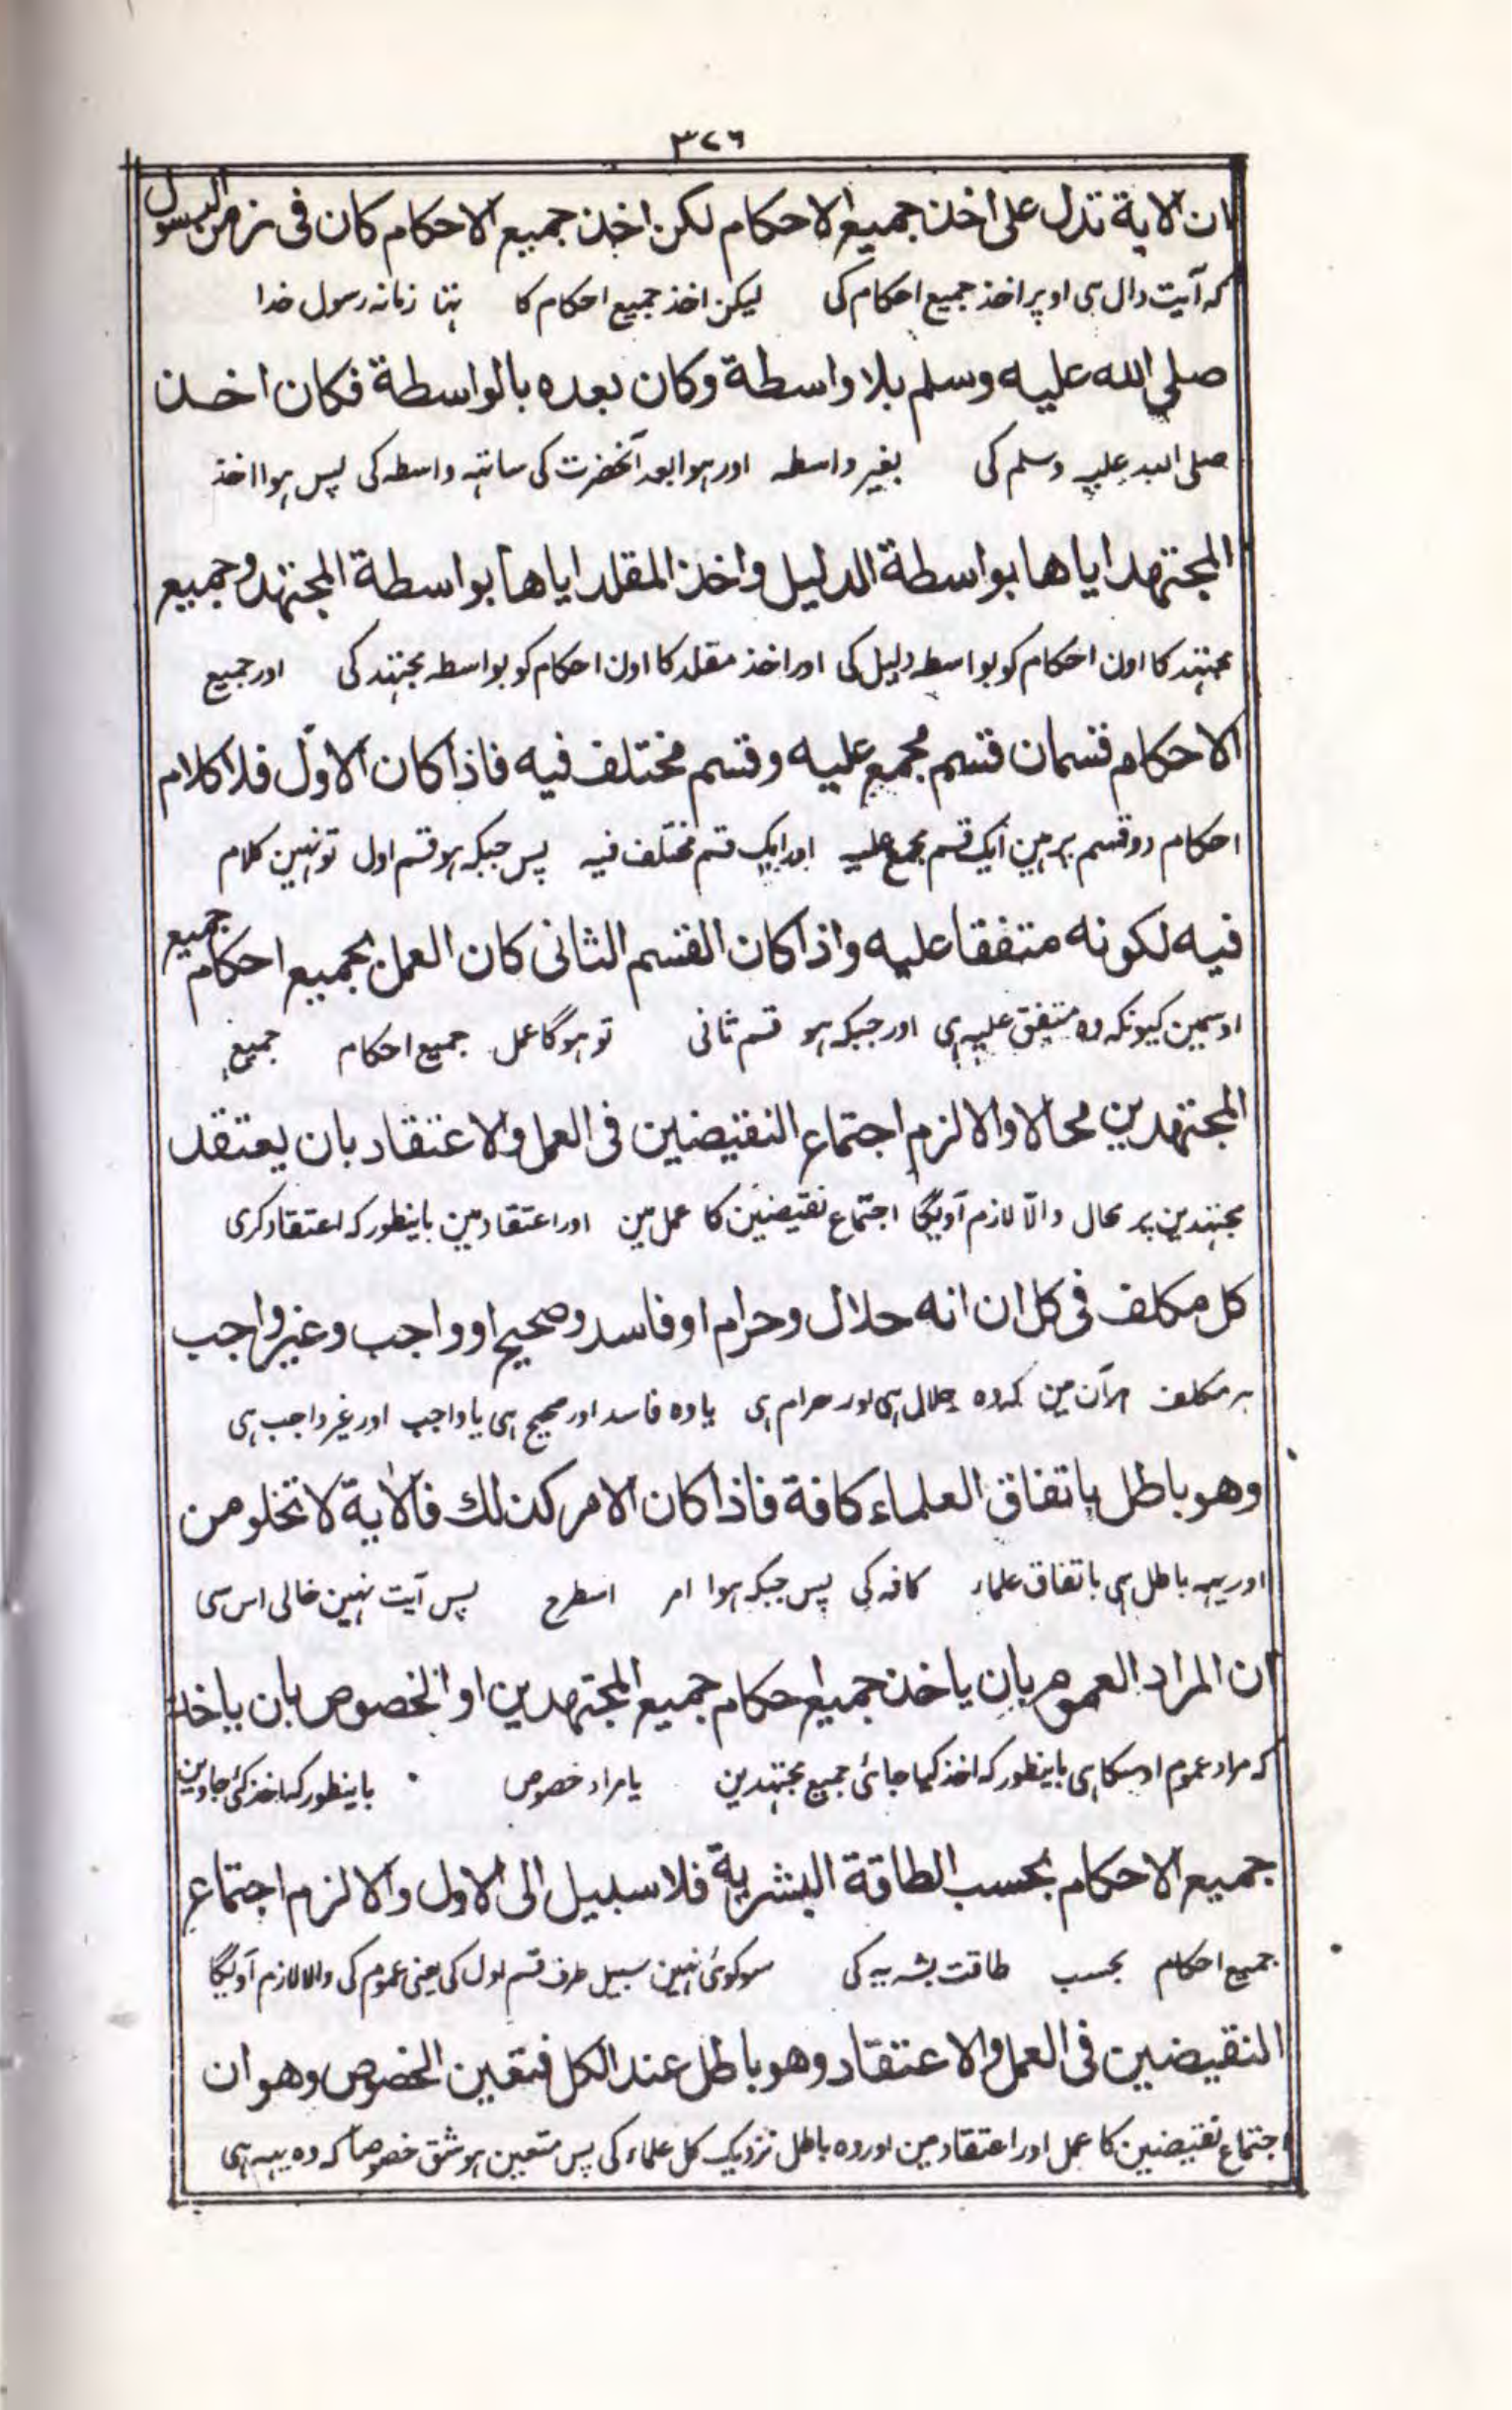 ٣٢٦
ان الایة تدل علی اخذ جمیع الاحکام لکن اخذ جمیع الاحکام کان فی زمن الرسول
کہ آیت دال ہی اوپر اخذ جمیع احکام کی لیکن اخذ جمیع احکام کا تہا زمانہ رسول خدا
صلی الله علیه وسلم بلا واسطة وکان بعده بالواسطة فکان اخذ
صلی اللہ علیہ وسلم کی بغیر واسطہ اور ہوا بعد آنحضرت کی ساتہہ واسطہ کی پس ہوا اخذ
المجتهد ایاها بواسطة الدلیل واخذ المقلد ایاها بواسطة المجتهد وجمیع
مجتہد کا اون احکام کو بواسطہ دلیل کی اور اخذ مقلد کا اون احکام کو بواسطہ مجتہد کی اور جمیع
الاحکام قسمان قسم مجمع علیه وقسم مختلف فیه فاذا کان الاوّل فلا کلام
احکام دو قسم پر ہین ایک قسم مجمع علیہ اور ایک قسم مختلف فیہ پس جبکہ ہو قسم اول تو نہین کلام
فیه لکونه متفقا علیه واذا کان القسم الثانی کان العمل بجمیع احکام جمیع
اوسمین کیونکہ وہ متفق علیہ ہی اور جبکہ ہو قسم ثانی تو ہوگا عمل جمیع احکام جمیع
المجتهدین محالا والا لزم اجتماع النقیضین فی العمل والاعتقاد بان یعتقد
مجتہدین پر محال والّا لازم آویگا اجتماع نقیضین کا عمل مین اور اعتقاد مین باینطور کہ اعتقاد کری
کل مکلف فی کل ان انه حلال وحرام او فاسد وصحیح او واجب وغیر واجب
ہر مکلف ہر آن مین کہ وہ حلال ہی اور حرام ہی یا وہ فاسد اور صحیح ہی یا واجب اور غیر واجب ہی
وهو باطل باتفاق العلماء کافة فاذا کان الامر کذلك فالایة لا تخلو من
اور یہہ باطل ہی باتفاق علماء کافہ کی پس جبکہ ہوا امر اسطرح پس آیت نہین خالی اس سی
ان المراد العموم بان یاخذ جمیع احکام جمیع المجتهدین او الخصوص بان یاخذ
کہ مراد عموم اوسکا ہی باینطور کہ اخذ کیا جائی جمیع مجتہدین یا مراد خصوص باینطور کہ اخذ کئی جاوین
جمیع الاحکام بحسب الطاقة البشریة فلا سبیل الی الاول والا لزم اجتماع
جمیع احکام بحسب طاقت بشریہ کی سو کوئی نہین سبیل طرف قسم اول کی یعنی عموم کی والا لازم آویگا
النقیضین فی العمل والاعتقاد وهو باطل عند الکل فتعین الخصوص وهو ان
اجتماع نقیضین کا عمل اور اعتقاد مین اور وہ باطل نزدیک کل علماء کی پس متعین ہو شق خصوصاً کہ وہ یہہ ہی